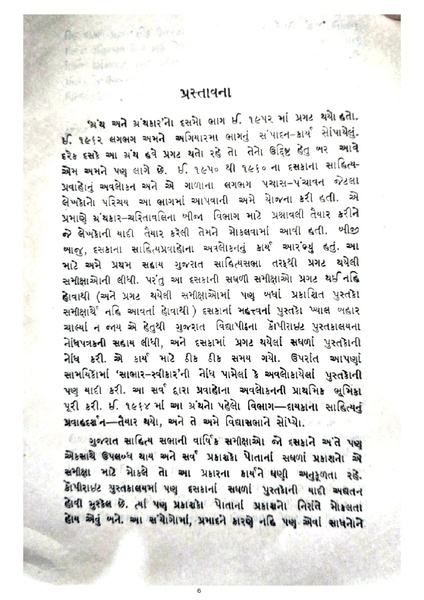 પ્રસ્તાવના
'ગ્રંથ અને ગ્રંથકાર'નો દસમો ભાગ ઈ. ૧૯૫૨ માં પ્રગટ થયો હતો.
ઈ. ૧૯૬૨ લગભગ અમને અગિયારમા ભાગનું સંપાદન-કાર્ય સોંપાયેલું.
દરેક દસકે આ ગ્રંથ હવે પ્રગટ થતો રહે તો તેનો ઉદ્દિષ્ટ હેતુ બર આવે
એમ અમને પણ લાગે છે. ઈ. ૧૯૫૦ થી ૧૯૬૦ ના દસકાના સાહિત્ય-
પ્રવાહોનું અવલોકન અને એ ગાળાના લગભગ પચાસ-પંચાવન જેટલા
લેખકોનો પરિચય આ ભાગમાં આપવાની અમે યોજના કરી હતી. એ
પ્રમાણે ગ્રંથકાર-ચરિતાવલિના બીજા વિભાગ માટે પ્રશ્નાવલી તૈયાર કરીને
જે લેખકોની યાદી તૈયાર કરેલી તેમને મોકલવામાં આવી હતી. બીજી
બાજુ, દસકાના સાહિત્યપ્રવાહોના અવલોકનનું કાર્ય આરંભ્યું હતું. આ
માટે અમે પ્રથમ સહાય ગુજરાત સાહિત્યસભા તરફથી પ્રગટ થયેલી
સમીક્ષાઓની લીધી. પરંતુ આ દસકાની સઘળી સમીક્ષાઓ પ્રગટ થઈ નહિ
હોવાથી (અને પ્રગટ થયેલી સમીક્ષાઓમાં પણ બધાં પ્રકાશિત પુસ્તકો
સમીક્ષાર્થે નહિ આવતાં હોવાથી) દસકાનાં મહત્ત્વનાં પુસ્તકો ખ્યાલ બહાર
ચાલ્યાં ન જાય એ હેતુથી ગુજરાત વિદ્યાપીઠના કૉપીરાઈટ પુસ્તકાલયના
નોંધપત્રકની સહાય લીધી, અને દસકામાં પ્રગટ થયેલાં સઘળાં પુસ્તકોની
નોંધ કરી. એ કાર્ય માટે ઠીક ઠીક સમય ગયો. ઉપરાંત આપણાં
સામયિકોમાં 'સાભાર-સ્વીકાર'ની નોંધ પામેલાં કે અવલોકાયેલાં પુસ્તકોની
પણ યાદી કરી. આ સર્વ દ્વારા પ્રવાહોના અવલોકનની પ્રાથમિક ભૂમિકા
પૂરી કરી. ઈ. ૧૯૬૪ માં આ ગ્રંથનો પહેલો વિભાગ—દાયકાના સાહિત્યનું
પ્રવાહદર્શન—તૈયાર થયો, અને તે અમે વિદ્યાસભાને સોંપ્યો.
ગુજરાત સાહિત્ય સભાની વાર્ષિક સમીક્ષાઓ જો દસકાને અંતે પણ
એકસાથે ઉપલબ્ધ થાય અને સર્વ પ્રકાશકો પોતાનાં સઘળાં પ્રકાશનો એ
સમીક્ષા માટે મોકલે તો આ પ્રકારના કાર્યને ઘણી અનુકૂળતા રહે.
કૉપીરાઈટ પુસ્તકાલયમાં પણ દસકાનાં સઘળાં પુસ્તકોની યાદી અદ્યતન
હોવી મુશ્કેલ છે. ત્યાં પણ પ્રકાશકો પોતાનાં પ્રકાશનો નિરાંતે મોકલતા
હોય એવું બને. આ સંયોગોમાં, પ્રમાદને કારણે નહિ પણ એવાં સાધનોને
6